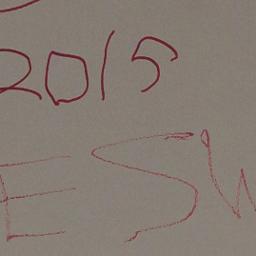 2015
ESW